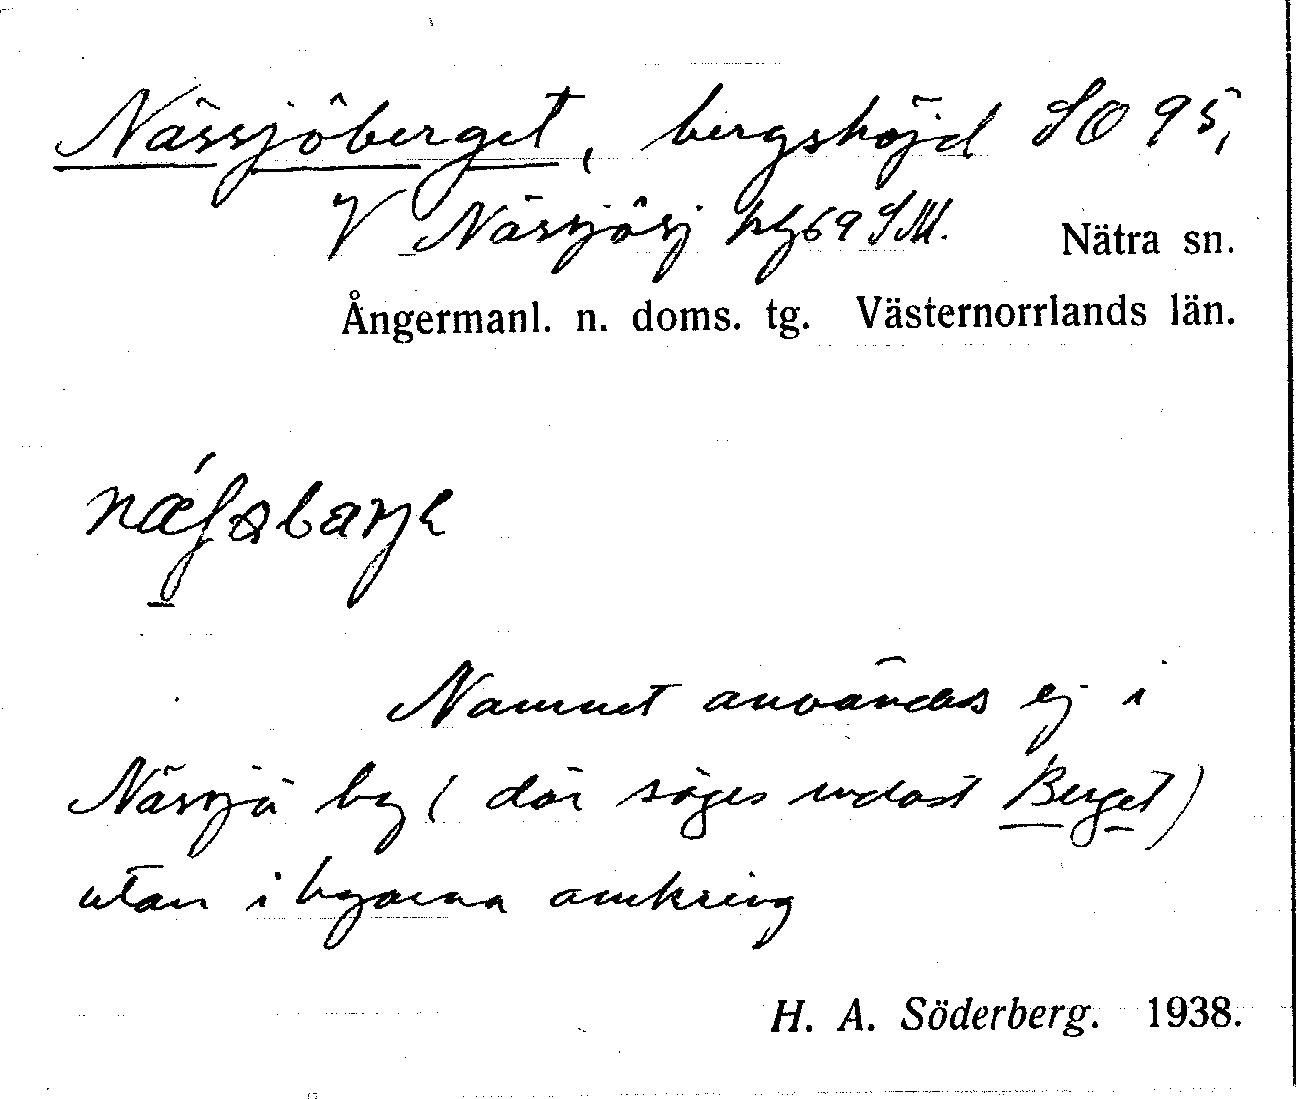 Nässjöberget, bergshöjd SO 95,
V Nässjösj hg 69 SM. Nätra sn.
Ångermanl. n. doms. tg. Västernorrlands län.
Namnet användes ej i
Nässjö by (där säges endast Berget)
utan i byarna omkring
H. A. Söderberg. 1938.